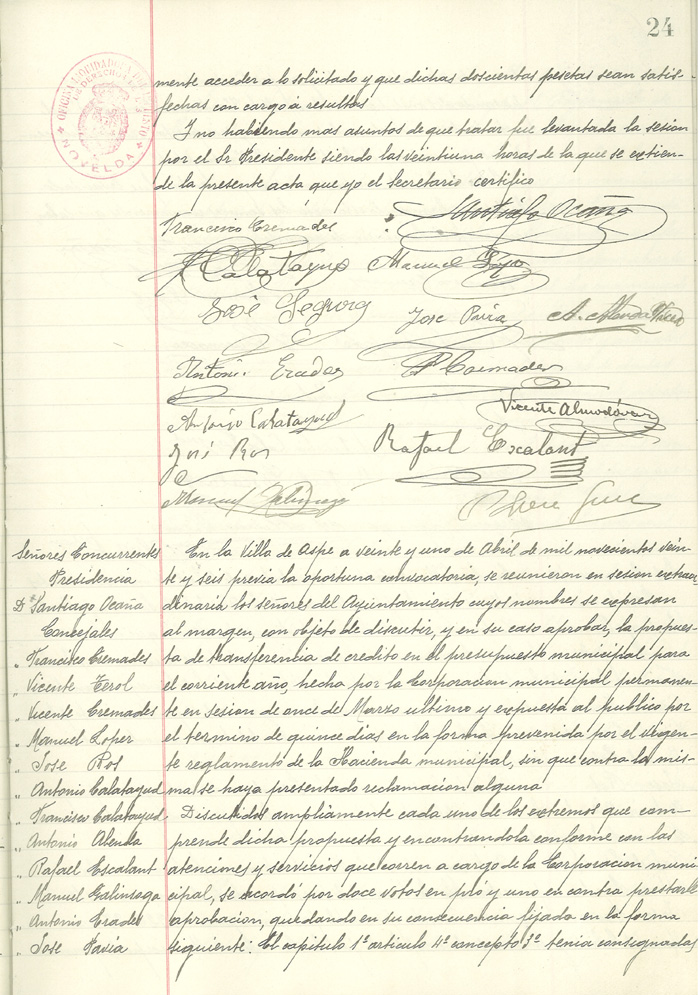 24
OFICINA LIQUIDADORA
DE DERECHOS
NOVELDA
mente acceder a lo solicitado y que dichas doscientas pesetas sean satis-
fechas con cargo á resultas
Y no habiendo mas asuntos de que tratar fue levantada la sesion
por el Sr Presidente siendo las veintiuna horas de la que se extien-
de la presente acta que yo el Secretario certifico
Francisco Cremades
Santiago Ocaña
Calatayud Manuel
José Segura
Jose Pavia
A. Alenda
Antonio Erades
Cremades
Antonio Calatayud
Vicente Almodóvar
José Ros
Rafael Escalant
Manuel Galinsoga
Señores Concurrentes
Presidencia
D. Santiago Ocaña
Concejales
" Francisco Cremades
" Vicente Terol
" Vicente Cremades
" Manuel Lopez
" Jose Ros
" Antonio Calatayud
" Francisco Calatayud
" Antonio Alenda
" Rafael Escalant
" Manuel Galinsoga
" Antonio Erades
" Jose Pavia
En la Villa de Aspe a veinte y uno de Abril de mil novecientos vein-
te y seis previa la oportuna convocatoria, se reunieron en sesion extraor
dinaria los señores del Ayuntamiento cuyos nombres se expresan
al margen, con objeto de discutir, y en su caso aprobar, la propues-
ta de transferencia de credito en el presupuesto municipal para
el corriente año, hecha por la Corporacion municipal permanen-
te en sesion de once de Marzo ultimo y expuesta al publico por
el termino de quince dias en la forma prevenida por el vigen-
te reglamento de la Hacienda municipal, sin que contra la mis-
ma se haya presentado reclamacion alguna
Discutidos ampliamente cada uno de los extremos que com-
prende dicha propuesta y encontrandola conforme con las
atenciones y servicios que corren a cargo de la Corporacion muni
cipal, se acordó por doce votos en pró y uno en contra prestarle
aprobacion, quedando en su consecuencia fijada en la forma
siguiente: El capitulo 1º articulo 4º concepto 3º tenia consignadas